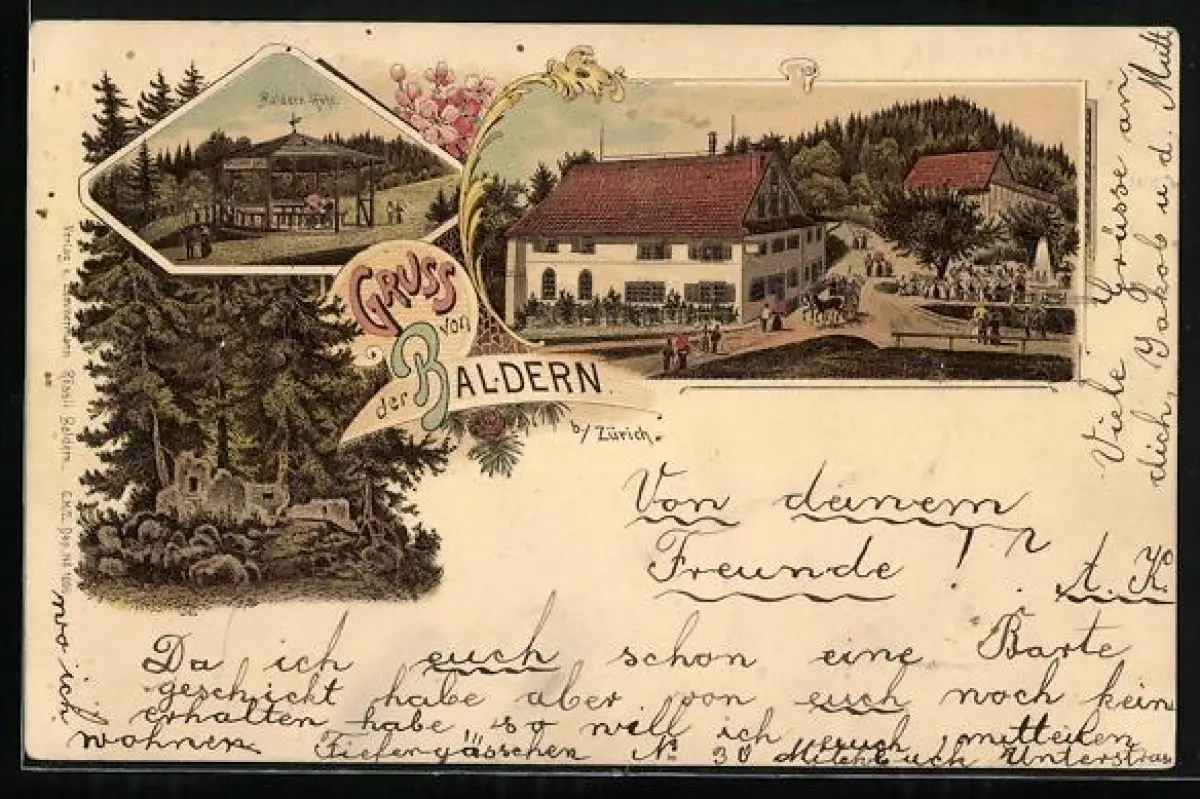 Baldern
GRUSS
von
der BALDERN.
b/ Zürich.
Viele Grüsse an
dich, Jakob u. d. Mutt
Von deinem
Freunde
A. K.
Da ich euch schon eine Karte
geschickt habe aber von euch noch kein
erhalten habe, so will ich euch mitteilen
wo ich
wohne. Tiefengässchen No. 30 Milchbuck Unterstras